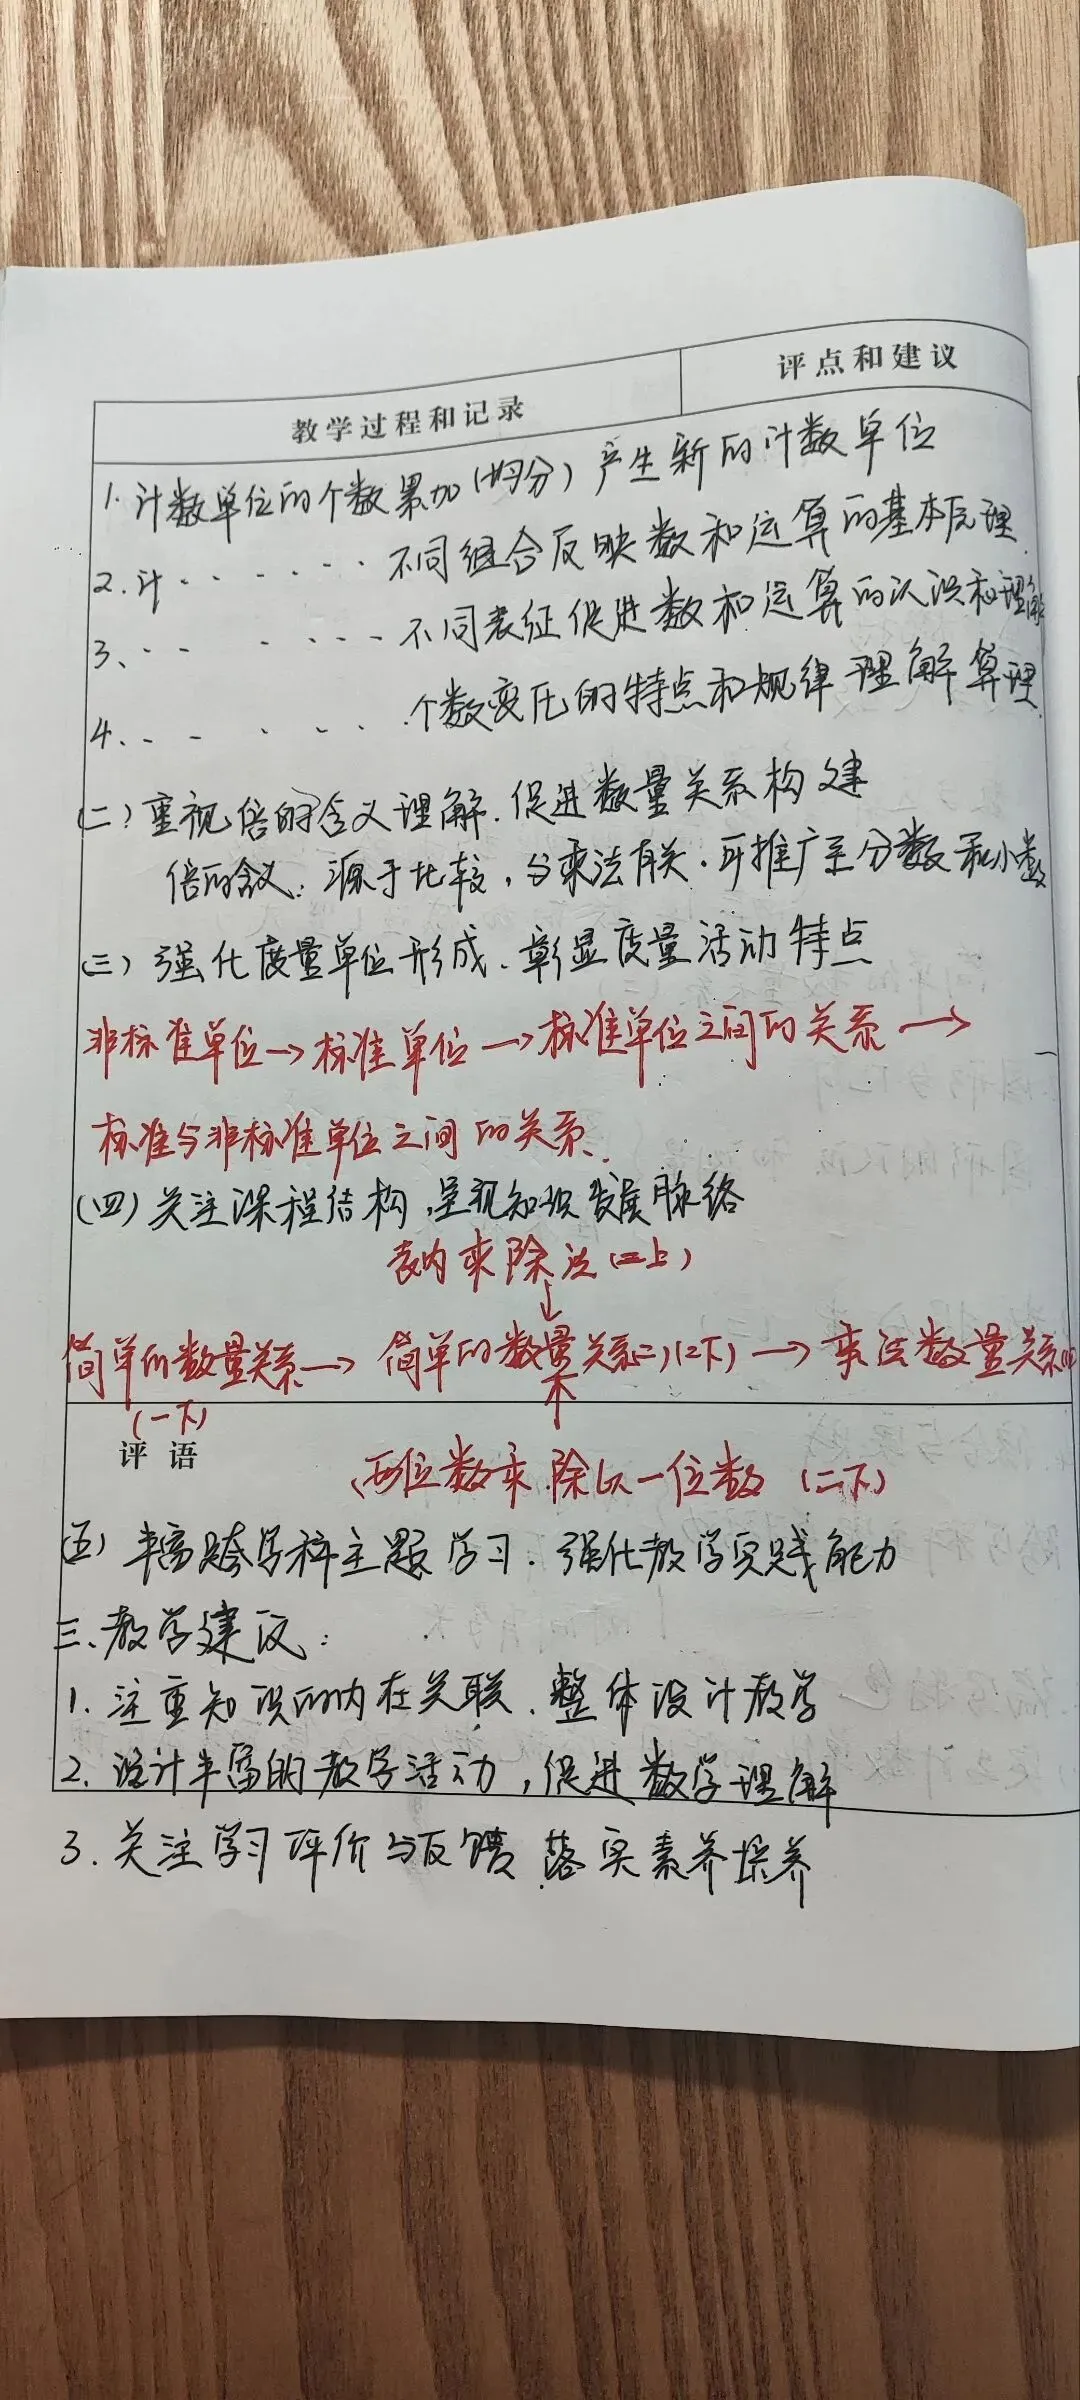 教学过程和记录 评点和建议
1.计数单位的个数累加(均分)产生新的计数单位
2.计······不同组合反映数和运算的基本原理.
3、······不同表征促进数和运算的认识和理解
4、·····个数变化的特点和规律理解算理.
(二)重视倍的含义理解.促进数量关系构建
倍的含义:源于比较,与乘法有关.可推广至分数和小数
(三)强化度量单位形成、彰显度量活动特点
非标准单位→标准单位→标准单位之间的关系→
标准与非标准单位之间的关系.
(四)关注课程结构,呈现知识发展脉络
表内乘除法(二上)
↓
简单的数量关系→简单的数量关系(二)(二下)→乘法数量关系
(一下)
↑
评语
两位数乘.除以一位数(二下)
(五)丰富跨学科主题学习.强化教学实践能力
三、教学建议:
1.注重知识的内在关联.整体设计教学
2.设计丰富的教学活动,促进数学理解
3.关注学习评价与反馈 落实素养培养